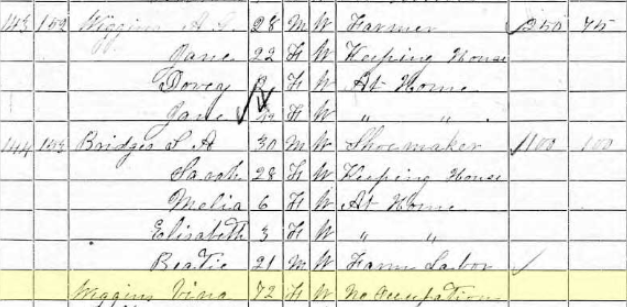 143 152 Wiggins A. J. 28 M W Farmer 250 75
Jane 22 F W Keeping House
Dovey F W At Home
Jane F W " "
144 153 Bridges S A 30 M W Shoemaker 100 100
Sarah 28 F W Keeping House
Melia 6 F W At Home
Elisabeth 3 F W " "
21 M W Farm Labor
Wiggins Vina 72 F W No Occupation